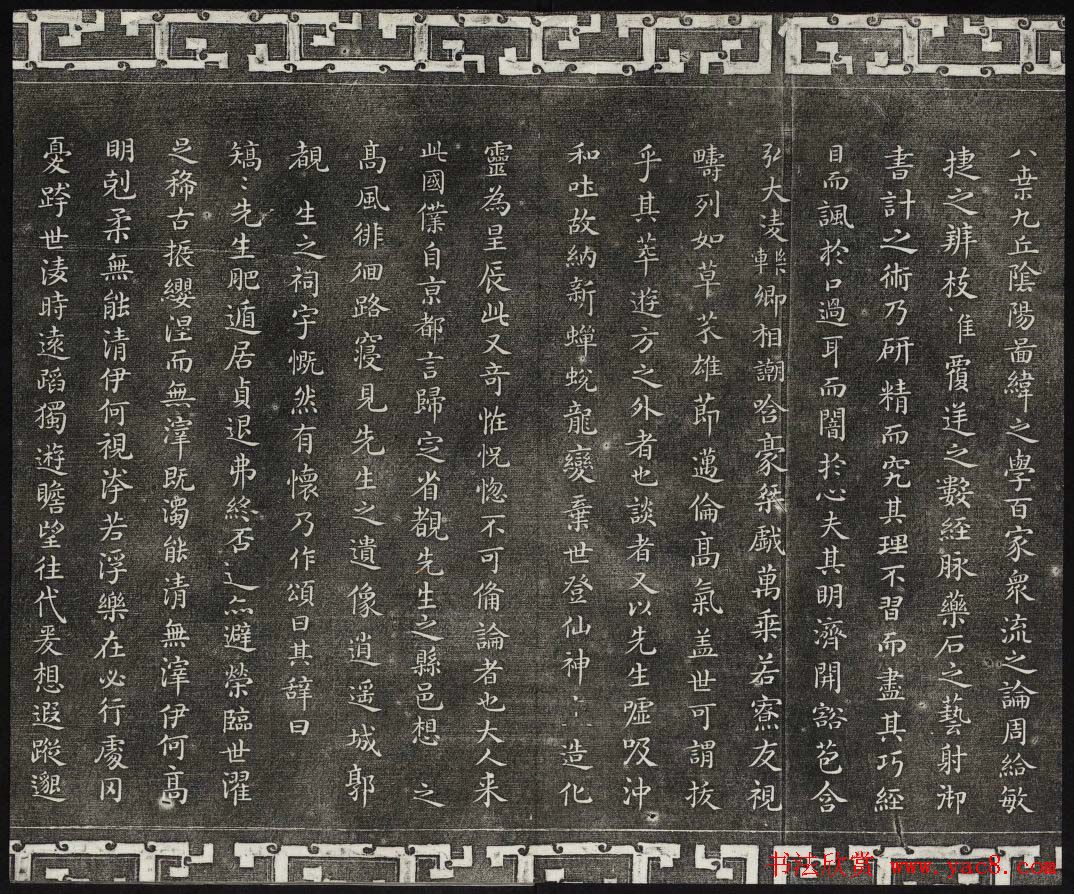 八索九丘陰陽啚緯之學百家衆流之論周給敏
捷之辨枝覆逆之數經脉藥石之藝射御
書計之術乃研精而究其理不習而盡其巧經
目而諷於口過耳而闇於心夫其明濟開豁苞含
弘大淩轢卿相謿哈豪桀戯萬乗若寮友視
疇列如草芥雄莭邁倫髙氣盖世可謂拔
乎其萃遊方之外者也談者又以先生嘘吸沖
和吐故納新蟬蛻龍變棄世登仙神造化
靈為星辰此又奇恠怳惚不可俻論者也大人来
此國僕自京都言歸定省覩先生之縣邑想 之
髙風徘徊路寑見先生之遺像逍遥城郭
覩 生之祠宇慨然有懷乃作頌曰其辞曰
矯〻先生肥遁居貞退弗終否亦避榮臨世濯
足稀古振纓涅而無滓既濁能清無滓伊何髙
明剋柔無能清伊何視洿若浮樂在必行處冈
憂跨世淩時遠蹈獨遊瞻望往代爰想遐蹤邈
书法欣赏 www.yac8.com